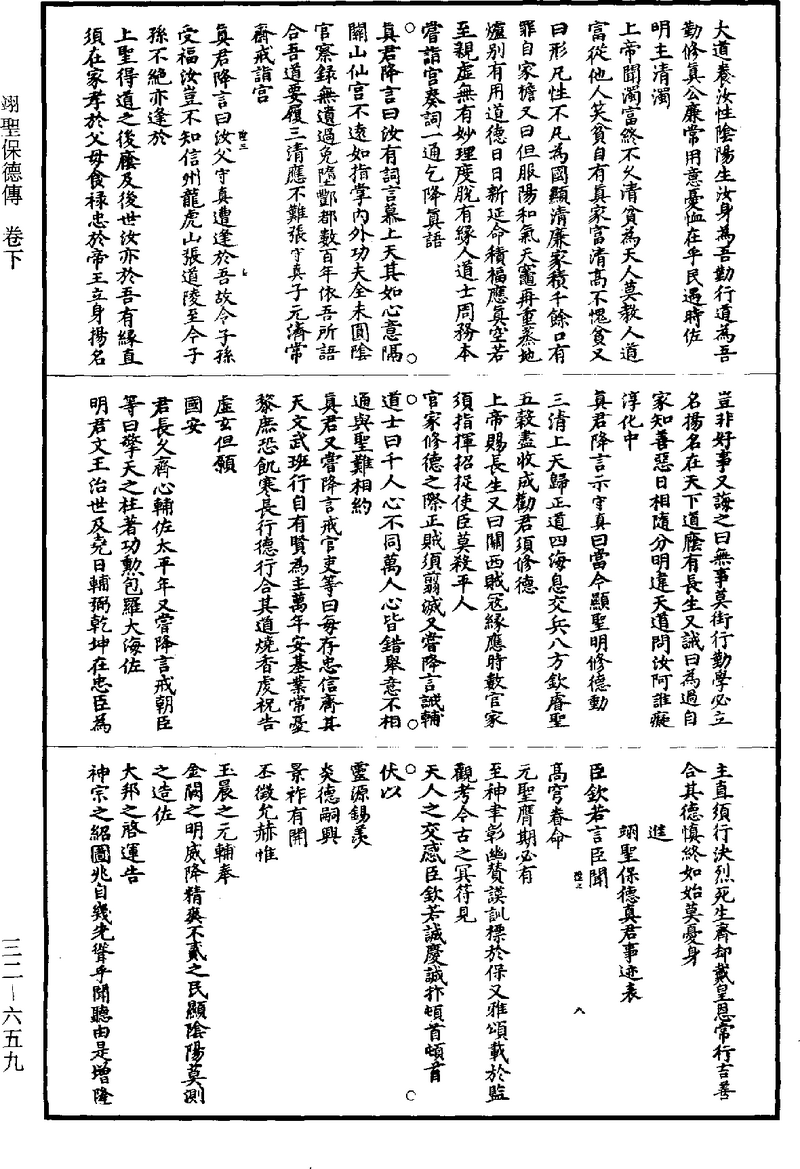 大道養汝性陰陽生汝身為吾勤行道為吾
勤修真公廉常用意憂恤在乎民遇時佐
明主清濁
上帝聞濁富終不久清貧為天人莫教人道
富從他人笑貧自有真家富清高不愧貧又
曰形凡性不凡為國顯清廉家積千餘口有
罪自家擔又曰但服陽和氣天竈再重蒸地
爐別有用道德日日新延命積福應真空若
至親虛無有妙理度脫有緣人道士周務本
嘗詣宮奏詞一通乞降真語
真君降言曰汝有詞言慕上天其如心意隔
關山仙宮不遠如指掌內外功夫全未圓陰
官察錄無遺過免墮酆都數百年依吾所語
合吾道要履三清應不難張守真子元濟常
齋戒詣宮
真君降言曰汝父守真遭逢於吾故令子孫
受福汝豈不知信州龍虎山張道陵至今子
孫不絕亦逢於
上聖得道之後廕及後世汝亦於吾有緣直
須在家孝於父母食祿忠於帝王立身揚名
豈非好事又誨之曰無事莫街行勤學必立
名揚名在天下道廕有長生又誡曰為過自
家知善惡日相隨分明違天道問汝阿誰癡
淳化中
真君降言示守真曰當今顯聖明修德動
三清上天歸正道四海息交兵八方欽睿聖
五穀盡收成勸君須修德
上帝賜長生又曰關西賊寇緣應時數官家
須指揮招捉使臣莫殺平人
官家修德之際正賊須翦滅又嘗降言誡輔
道士曰千人心不同萬人心皆錯舉意不相
通與聖難相約
真君又嘗降言戒官吏等曰每存忠信齊其
天文武班行自有賢為主萬年安基業常憂
黎庶恐飢寒長行德行合其道燒香虔祝告
虛玄但願
國安
君長久齊心輔佐太平年又嘗降言戒朝臣
等曰擎天之柱著功勲包羅大海佐
明君文王治世及堯日輔弼乾坤在忠臣為
主直須行決烈死生齊却戴皇恩常行吉善
合其德慎終如始莫憂身
進
翊聖保德真君事迹表
臣欽若言臣聞
高穹眷命
元聖膺期必有
至神聿彰幽贊謨訓標於保乂雅頌載於監
觀考今古之冥符見
天人之交感臣欽若誠慶誠抃頓首頓首
伏以
靈源錫羨
炎德嗣興
景祚有開
丕徵允赫惟
玉晨之元輔奉
金闕之明威降精爽不貳之民顯陰陽莫測
之造佐
大邦之啓運告
神宗之紹圖兆自幾先聳乎聞聽由是增隆
八
翊聖保德傳 卷下
三二—六五九